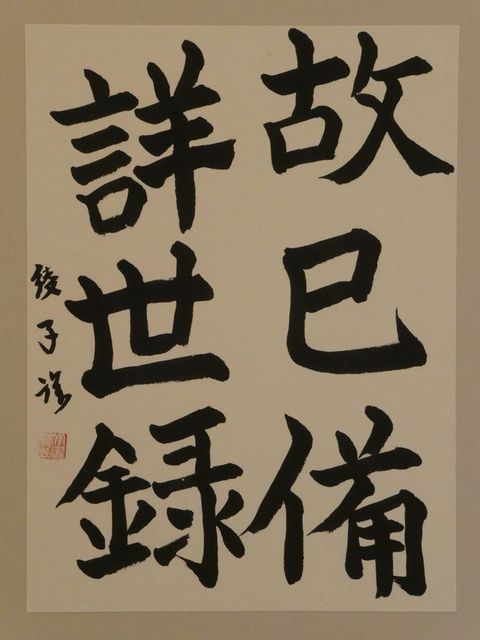 故已備
詳世録
綾子